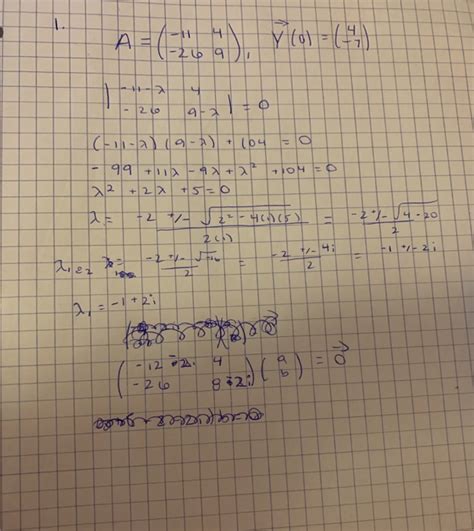 1.
A = (-11 4 -26 9), Y⃗(0) = (4 -7)
| -11-λ 4 -26 9-λ | = 0
(-11-λ)(9-λ) + 104 = 0
- 99 + 11λ - 9λ + λ² + 104 = 0
λ² + 2λ + 5 = 0
λ = -2 +/- √2² - 4(1)(5) / 2(1) = -2 +/- √4 - 20 / 2
λ1 & 2 = -2 +/- √-16 / 2 = -2 +/- 4i / 2 = -1 +/- 2i
λ₁ = -1 + 2i
(-12 -2i 4 -26 8 -2i)(a b) = 0⃗